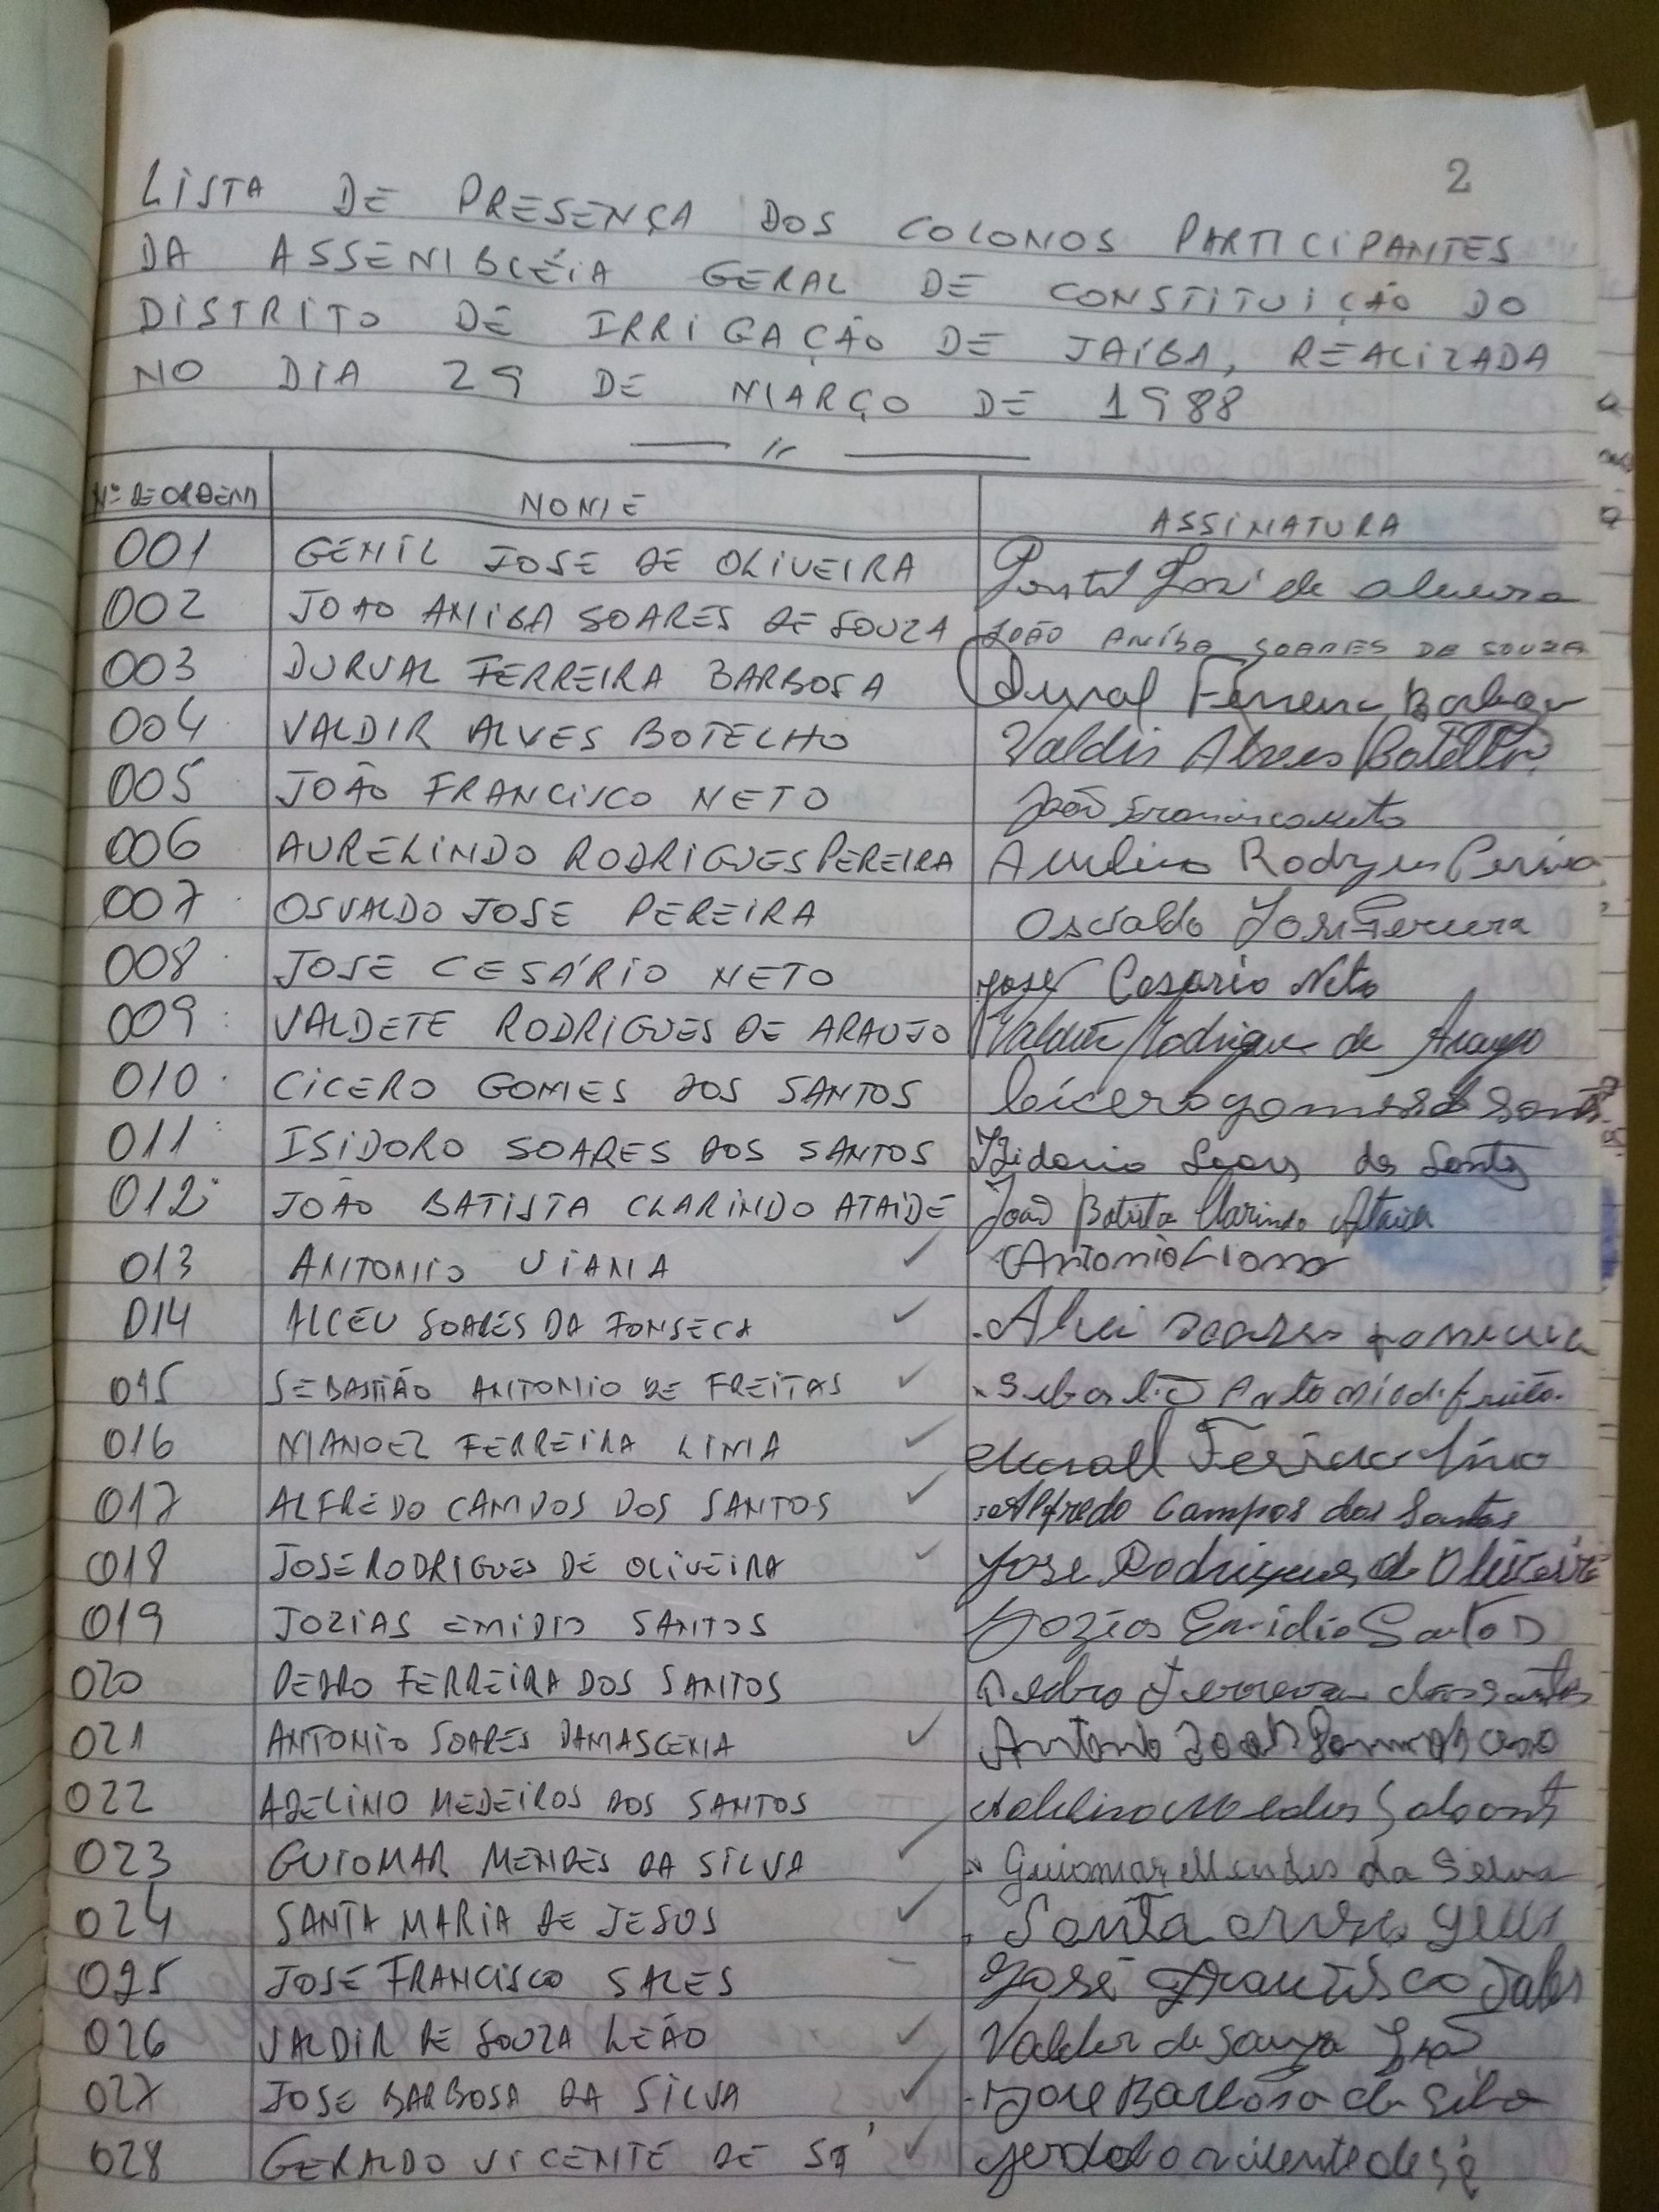 2
LISTA DE PRESENÇA DOS COLONOS PARTICIPANTES
DA ASSEMBLÉIA GERAL DE CONSTITUIÇÃO DO
DISTRITO DE IRRIGAÇÃO DE JAÍBA, REALIZADA
NO DIA 29 DE MARÇO DE 1988
Nº DE ORDEM NOME ASSINATURA
001 GENIL JOSE DE OLIVEIRA José de
002 JOAO ANIBA SOARES DE SOUZA JOÃO ANÍBA SOARES DE SOUZA
003 DURVAL FERREIRA BARBOSA Durval Ferreira Barbosa
004 VALDIR ALVES BOTELHO Valdir Alves Botelho
005 JOÃO FRANCISCO NETO João Francisco Neto
006 AURELINDO RODRIGUES PEREIRA
007 OSVALDO JOSE PEREIRA Osvaldo José Pereira
008 JOSE CESÁRIO NETO José Cesario Neto
009 VALDETE RODRIGUES DE ARAUJO Valdete Rodrigues de Araujo
010 CICERO GOMES DOS SANTOS Cicero gomes
011 ISIDORO SOARES DOS SANTOS
012 JOÃO BATISTA CLARINDO ATAIDE João Batista Clarindo Ataide
013 ANTONIO VIANA Antonio
014 ALCEU SOARES DA FONSECA
015 SEBASTIÃO ANTONIO DE FREITAS
016 MANOEL FERREIRA LIMA
017 ALFREDO CAMPOS DOS SANTOS Alfredo Campos dos Santos
018 JOSE RODRIGUES DE OLIVEIRA Jose Rodrigues de Oliveira
019 JOZIAS EMIDIO SANTOS Jozias Emidio Santos
020 PEDRO FERREIRA DOS SANTOS Pedro Ferreira dos santos
021 ANTONIO SOARES DAMASCENA Antonio
022 ADELINO MEDEIROS DOS SANTOS
023 GUIOMAR MENDES DA SILVA Guiomar Mendes da Silva
024 SANTA MARIA DE JESUS Santa
025 JOSÉ FRANCISCO SALES José Francisco Sales
026 VALDIR DE SOUZA LEÃO de Souza Leão
027 JOSE BARBOSA DA SILVA Jose Barbosa da Silva
028 GERALDO VICENTE DE SÁ